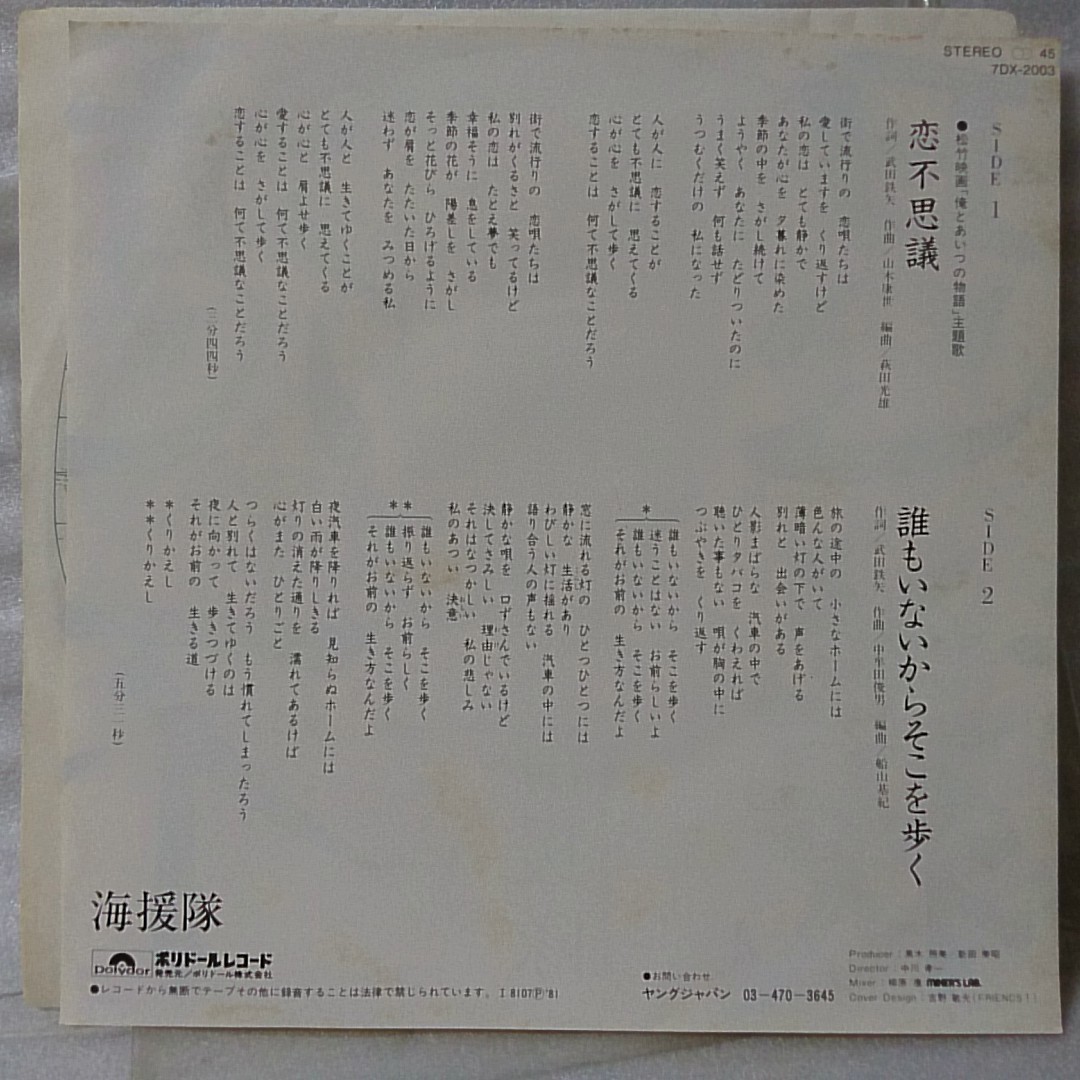 STEREO 45
7DX-2003
SIDE 1
●松竹映画「俺とあいつの物語」主題歌
恋不思議
作詞／武田鉄矢 作曲／山木康世 編曲／萩田光雄
街で流行りの 恋唄たちは
愛していますを くり返すけど
私の恋は とても静かで
あなたが心を 夕暮れに染めた
季節の中を さがし続けて
ようやく あなたに たどりついたのに
うまく笑えず 何も話せず
うつむくだけの 私になった
人が人に 恋することが
とても不思議に 思えてくる
心が心を さがして歩く
恋することは 何て不思議なことだろう
街で流行りの 恋唄たちは
別れがくるさと 笑ってるけど
私の恋は たとえ夢でも
幸福そうに 息をしている
季節の花が 陽差しを さがし
そっと花びら ひろげるように
恋が肩を たたいた日から
迷わず あなたを みつめる私
人が人と 生きてゆくことが
とても不思議に 思えてくる
心が心と 肩よせ歩く
愛することは 何て不思議なことだろう
心が心を さがして歩く
恋することは 何て不思議なことだろう
（三分四四秒）
SIDE 2
誰もいないからそこを歩く
作詞／武田鉄矢 作曲／中牟田俊男 編曲／船山基紀
旅の途中の 小さなホームには
色んな人がいて
薄暗い灯の下で 声をあげる
別れと 出会いがある
人影まばらな 汽車の中で
ひとりタバコを くわえれば
聴いた事もない 唄が胸の中に
つぶやきを くり返す
＊
誰もいないから そこを歩く
迷うことはない お前らしいよ
誰もいないから そこを歩く
それがお前の 生き方なんだよ
窓に流れる灯の ひとつひとつには
静かな 生活があり
わびしい灯に揺れる 汽車の中には
語り合う人の声もない
静かな唄を 口ずさんでいるけど
決してさみしい 理由じゃない
それはなつかしい 私の悲しみ
私のあつい 決意
＊＊
誰もいないから そこを歩く
振り返らず お前らしく
誰もいないから そこを歩く
それがお前の 生き方なんだよ
夜汽車を降りれば 見知らぬホームには
白い雨が降りしきる
灯りの消えた通りを 濡れてあるけば
心がまた ひとりごと
つらくはないだろう もう慣れてしまったろう
人と別れて 生きてゆくのは
夜に向かって 歩きつづける
それがお前の 生きる道
＊くりかえし
＊＊くりかえし
（五分二一秒）
海援隊
polydor
ポリドールレコード
発売元／ポリドール株式会社
●レコードから無断でテープその他に録音することは法律で禁じられています。 I 8107 Ⓟ'81
●お問い合わせ
ヤングジャパン 03-470-3645
Producer：
Director：中川
Mixer： MINER'S LAB.
Cover Design：吉野 敏光(FRIENDS！)